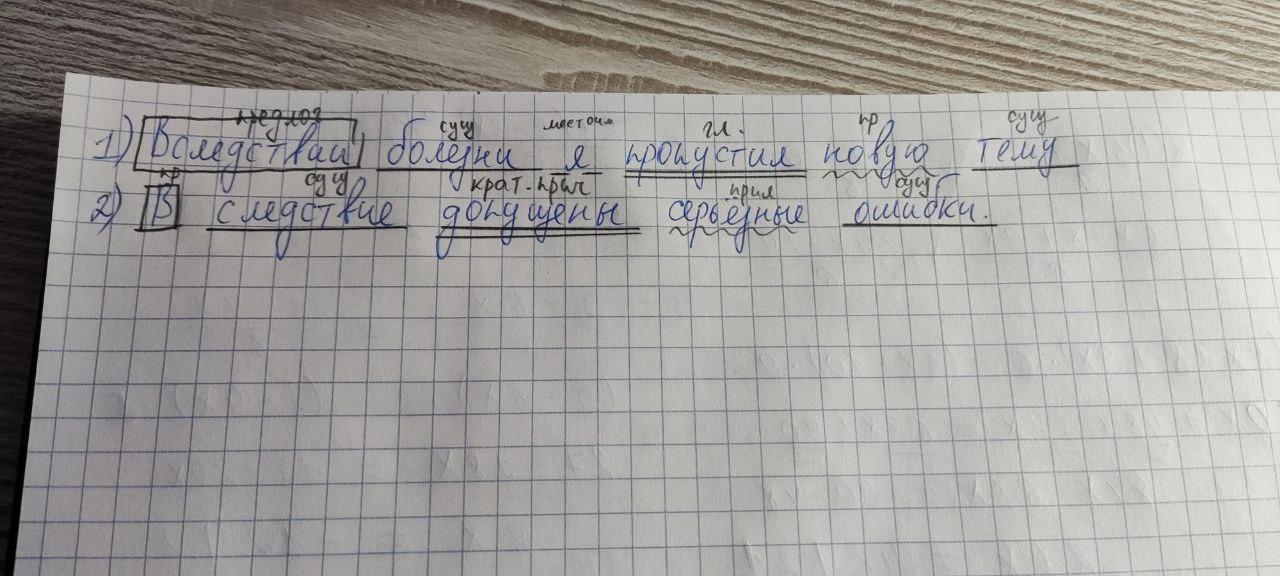 предлог сущ местоим гл. пр сущ
1) Вследствии болезни я пропустил новую тему
пр сущ крат. прич прил сущ
2) В следствие допущены серьёзные ошибки.